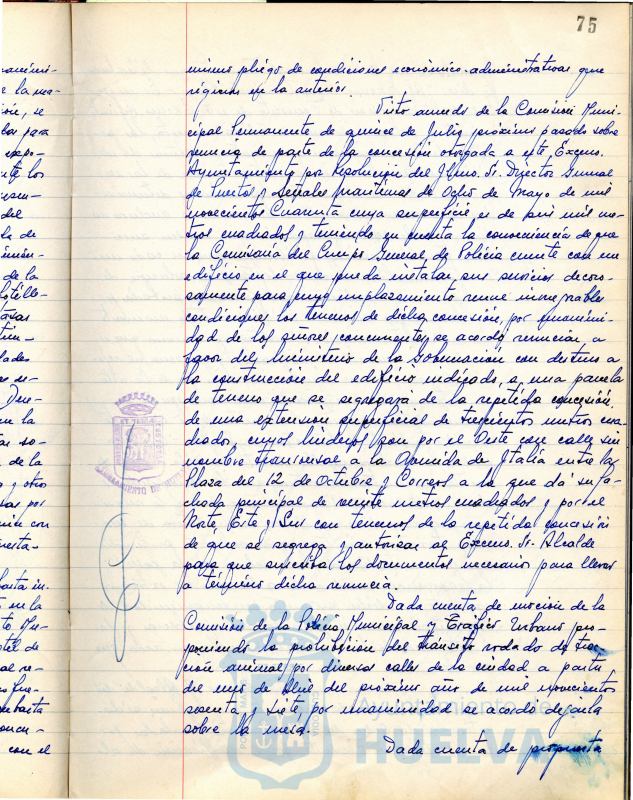 75
mismo pliego de condiciones económico-administrativas que
rigieron en la anterior.
Visto acuerdo de la Comisión Muni-
cipal Permanente de quince de Julio próximo pasado sobre
renuncia de parte de la concesión otorgada a este Excmo.
Ayuntamiento por Resolución del Iltmo. Sr. Director General
de Puertos y Señales Marítimas de Ocho de Mayo de mil
novecientos Cuarenta cuya superficie es de seis mil me-
tros cuadrados y teniendo en cuenta la conveniencia de que
la Comisaría del Cuerpo General de Policía cuente con un
edificio en el que pueda instalar sus servicios decoro-
samente para cuyo emplazamiento reune inmejorables
condiciones los terrenos de dicha concesión, por unanimi-
dad de los señores concurrentes se acordó renunciar a
favor del Ministerio de la Gobernación con destino a
la construcción del edificio indicado, a una parcela
de terreno que se segregará de la repetida concesión,
de una extensión superficial de trescientos metros cua-
drados, cuyos linderos son por el Oeste con calle sin
nombre transversal a la Avenida de Italia entre la
Plaza del 12 de Octubre y Correos a la que da su fa-
chada principal de veinte metros cuadrados y por el
Norte, Este y Sur con terrenos de la repetida concesión
de que se segrega y autorizar al Excmo. Sr. Alcalde
para que suscriba los documentos necesarios para llevar
a término dicha renuncia.
Dada cuenta de moción de la
Comisión de la Policía Municipal y Tráfico Urbano pro-
poniendo la prohibición del tránsito rodado de trac-
ción animal por diversas calles de la ciudad a partir
del mes de Abril del próximo año de mil novecientos
sesenta y siete, por unanimidad se acordó dejarla
sobre la mesa.
Dada cuenta de propuesta
Ayuntamiento de
HUELVA